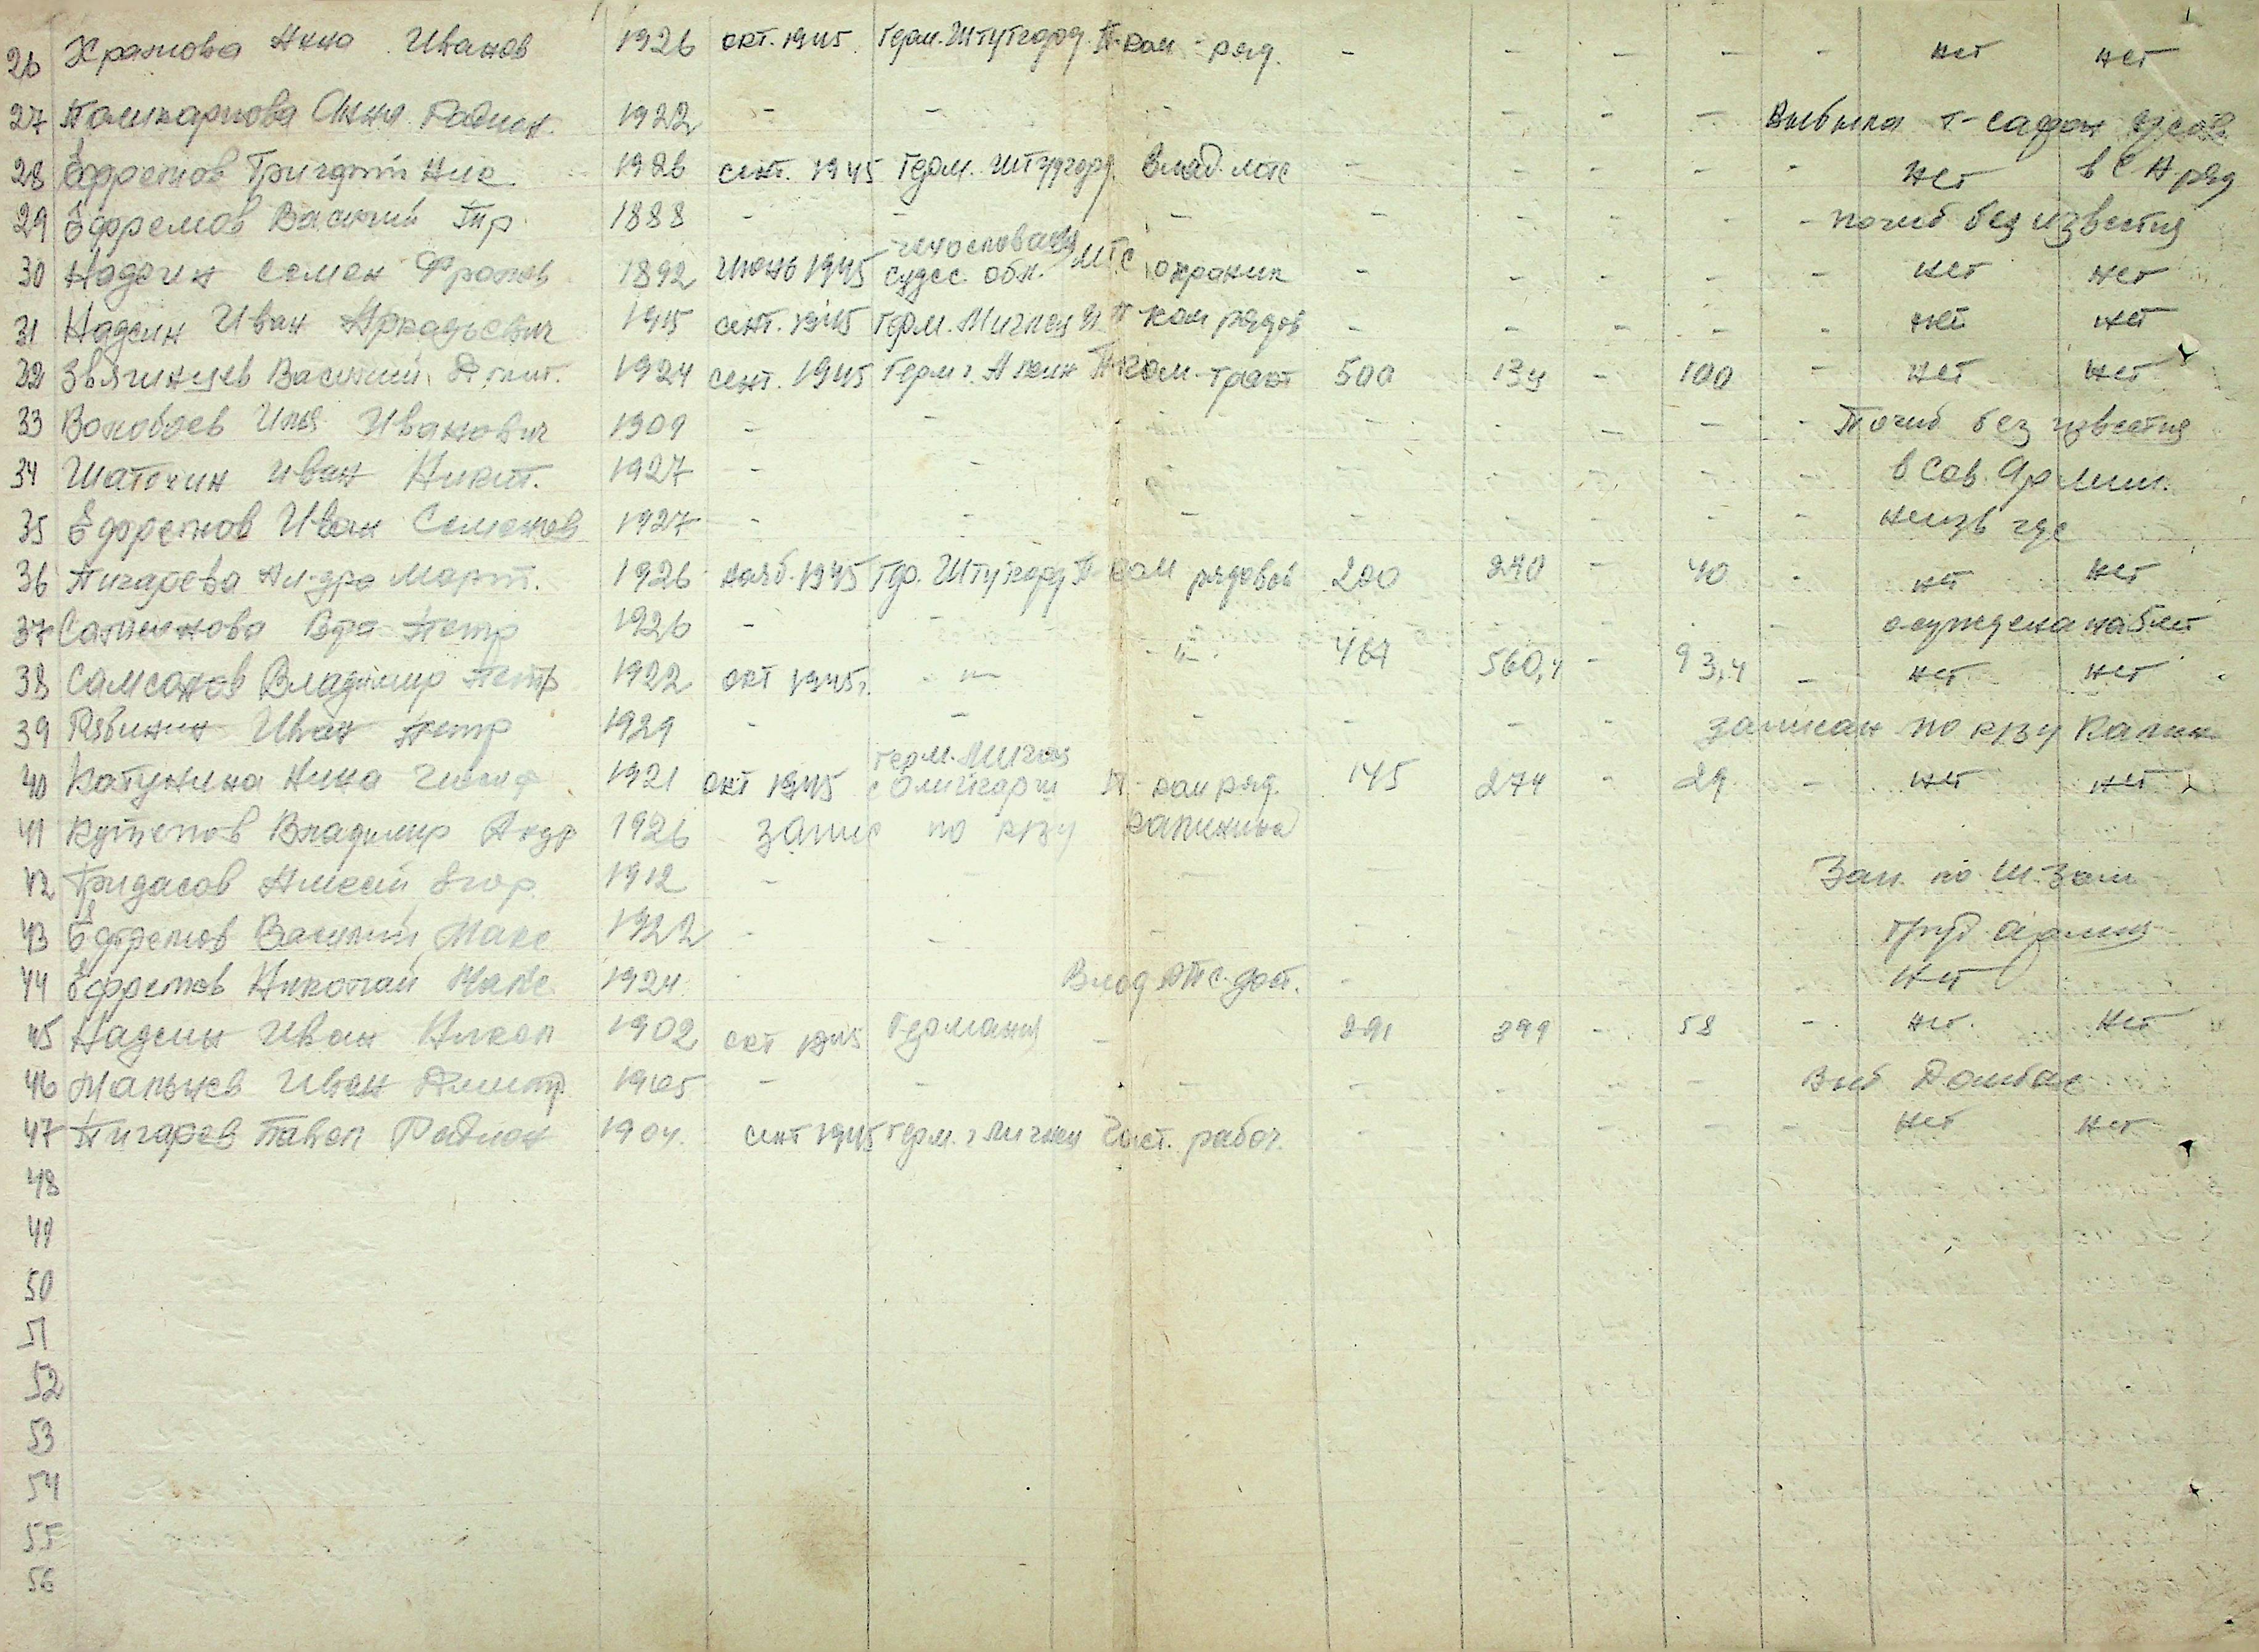 26 Храмова Анна Иванов 1926 окт. 1945 Герм. Штутгард П-ком ряд. - - - - - нет нет
27 Поликарпова Анна Радион. 1922 - - - - - - Выбыла
28 Ефремов Григорий Ник. 1926 сент. 1945 Герм. Штудгард. Влад. мтс - - - - - нет в С А ряд
29 Ефремов Василий Гр. 1888 - - - - - - - - погиб без известия
чехословакия
30 Надеин Семен 1892 июнь 1945 судес. обл. мтс охраник - - - - - нет нет
31 Надеин Иван Аркадьевич 1915 сент. 1945 Герм. П-ком рядов - - - - - нет нет
32 Звягинцев Василий 1924 сент. 1945 Герм г. П-ком-тракт 500 134 - 100 - нет нет
33 Воробьев Илья Иванович 1909 - - - - - - - - Погиб без известия
34 Шатохин Иван Никит. 1927 - - - - - - - - в Сов. Армии.
35 Ефремов Иван Семенов 1927 - - - - - - - - неизв где
36 Пигарева Ал-дра Март. 1926 нояб. 1945 Гер. Штутгард П-ком рядовой 200 240 - 40 - нет нет
37 Вера Петр 1926 - - - осуждена
38 Самсонов Владимир Петр 1922 окт 1945г. - " - - " - 467 560,4 - 93,4 - нет нет
39 Рябинин Иван Петр 1929 - - - - - - записан по к/зу Калин
Герм.
40 Катунина Нина 1921 окт 1945 П-ком ряд. 145 274 - 29 - нет нет
41 Кутепов Владимир 1926 запис по к/зу Калинина
42 Гридасов Алексей Егор. 1912 - Зап. по
43 Ефремов Василий Макс 1922 - - - - - - - труд армии
44 Ефремов Николай Макс 1924 - Влад МТС - нет
45 Надеин Иван Никол 1902 окт 1945 Германия - 291 299 - 58 - нет. нет
46 Мальцев Иван Дмитр. 1905 - - - - - - - выб Донбас
47 Пигарев Павел Радион 1904. сент 1945 Герм. г Част. рабоч. - - - - - нет нет
48
49
50
51
52
53
54
55
56